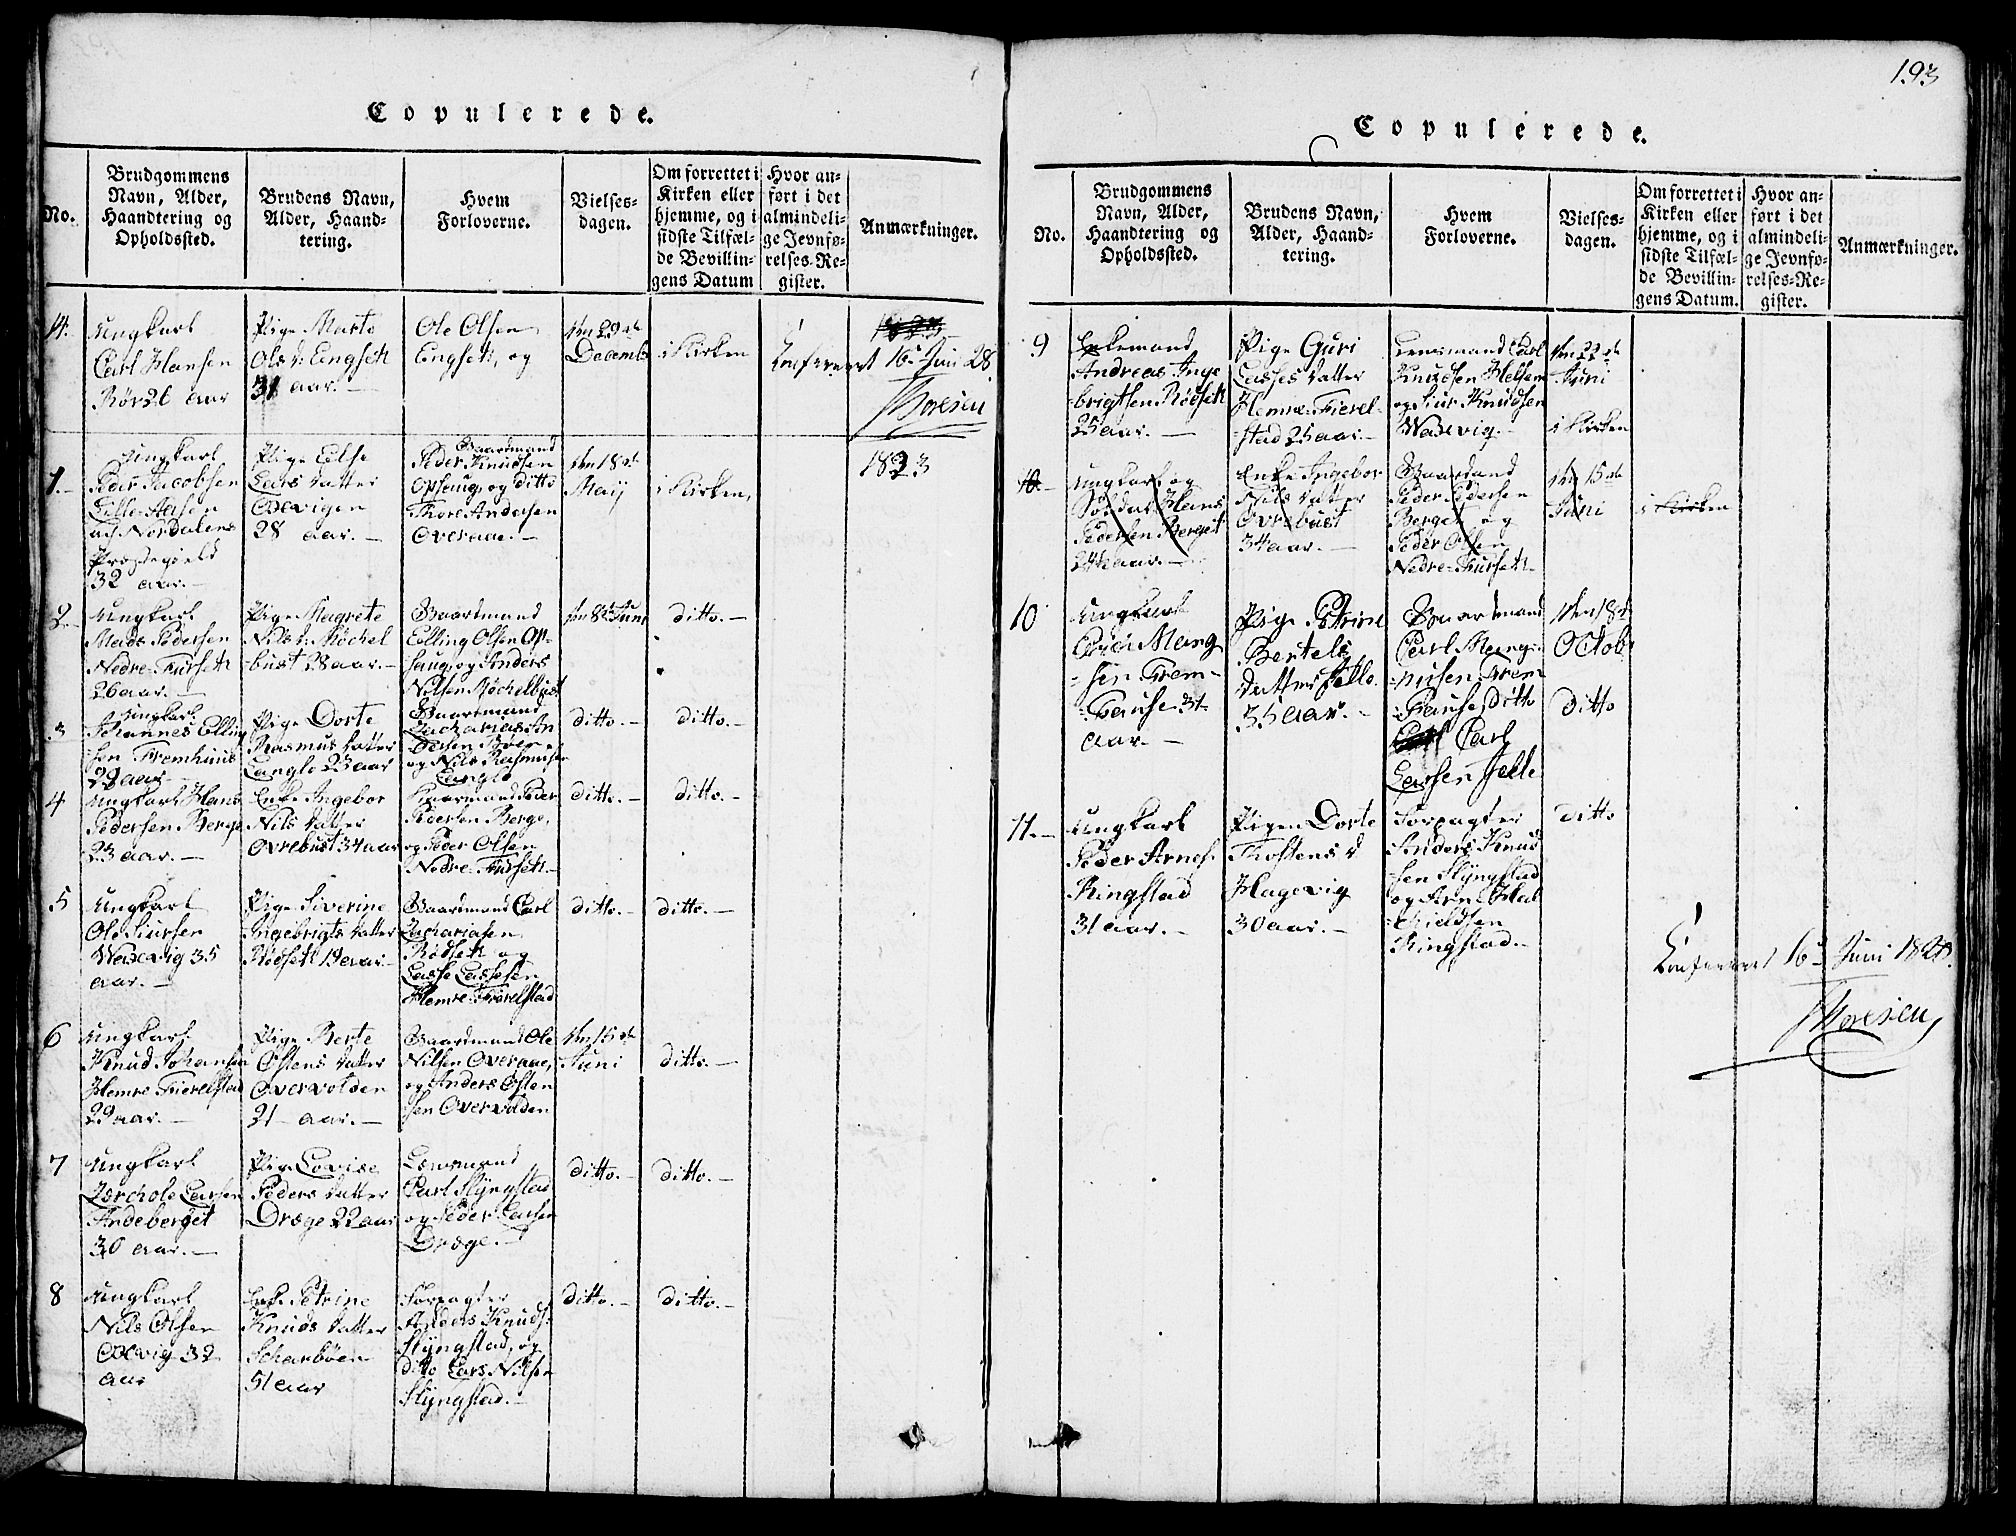 193
Copulerede.
No.
Brudgommens
Navn, Alder,
Haandtering og
Opholdssted.
Brudens Navn,
Alder, Haand-
tering.
Hvem
Forloverne.
Vielses-
dagen.
Om forrettet i
Kirken eller
hjemme, og i
sidste Tilfæl-
de Bevillin-
gens Datum
Hvor an-
ført i det
almindeli-
ge Jevnfø-
relses-Re-
gister.
Anmærkninger.
14.
Ungkarl
Carl Hansen
Rör 26 aar
Pige Marte
Ols d. Eengseth
31 aar.
Ole Olsen
Engseth, og
den 29de
Decemb
i Kirken
1823
Confereret 16 Juni 28
Thoresen
1823
1.
Ungkarl
Peder Jacobsen
Lille-Aasen
af Nordalens
Præstegield
32 aar.
Pige Else
Lars datter
28 aar.
Gaardmand
Peder Knudsen
Opsaug, og ditto
Thore Andersen
Overaae.
den 18de
Maij
i Kirken,
2
Ungkarl
Mads Pedersen
Nedre-Furseth
26 aar.
Pige Magrete
Nils d. Möchel
bust 28 aar.
Gaardmand
Elling Olsen Op-
saug, og Anders
Nilsen Möchelbust
den 8de Juni
ditto.
3
Ungkarl
Johannes Elling
sen Fremhuus
29 aar
Pige Dorte
Rasmus datter
Langlo 23 aar
Gaardmand
Zacharias An
dersen Böen
og Nils Rasmusen
Langlo
ditto.
ditto.
4
Ungkarl Hans
Pedersen Berge
23 aar.
Enke Ingebor
Nils datter
Ovrebust 34 aar
Gaardmand Peder
Pedersen Berge,
og Peder Olsen
Nedre-Furseth
ditto.
ditto.
5
Ungkarl
Ole Siursen
Waxevig 35
aar.
Pige Siverine
Ingebrigts datter
Rödseth 19 aar
Gaardmand Carl
Zachariasen
Rödseth og
Lasse Lassesen
Hemre-Fiörelstad
ditto.
ditto.
6
Ungkarl
Knud Johansen
Hemre Fiörelstad
29 aar.
Pige Berte
Östens datter
Overvolden
21 aar.
Gaardmand Ole
Nilsen Overaae,
og Anders Östen
sen Overvolden
den 15de
Juni
ditto.
7
Ungkarl
Zerchole Larsen
Andeberget
30 aar.
Pige Lovise
Peders datter
Dræge 22 aar
Lensmand
Carl Slÿngstad
og Peder Larsen
Dræge.
ditto.
ditto.
8
Ungkarl
Nils Olsen
32
aar
Enke Petrine
Knuds datter
Scharböen
51 aar
Forpagter
Anders Knuds.
Slÿngstad, og
ditto Lars Nilsen
Slÿngstad.
ditto.
ditto.
Copulerede.
No.
Brudgommens
Navn, Alder,
Haandtering og
Opholdssted.
Brudens Navn,
Alder, Haand-
tering.
Hvem
Forloverne.
Vielses-
dagen.
Om forrettet i
Kirken eller
hjemme, og i
sidste Tilfæl-
de Bevillin-
gens Datum.
Hvor an-
ført i det
almindeli-
ge Jevnfø-
relses-Re-
gister.
Anmærkninger.
9
Enkemand
Andreas Inge
brigtsen Rödseth
25 aar.
Pige Guri
Lasses datter
Hemre-Fiörel-
stad 25 aar.
Lensmand Carl
Knudsen Helsem
og Siur Knudsen
Waxevig.
den 22de
Juni
i Kirken
10
Ungkarl og
Soldat Hans
Pedersen Berget
24 aar.
Enke Ingebor
Nils datter
Övrebust
34 aar.
Gaardmand
Peder Pedersen
Berget og
Peder Olsen
Nedre-Furseth
den 15de
Juni
i Kirken
10
Ungkarl
Mang
sen Frem
Hause 31
aar.
Pige Petrine
Bertels
datter Velle
35 aar.
Gaardmand
Carl Mang
nusen Frem
Hause ditto
Carl
Larsen Velle
den 18de
Octob
ditto
11.
Ungkarl
Peder Arnes.
Ringstad
31 aar.
Pigen Dorte
Thostens d
Hagevig
30 aar.
Forpagter
Anders Knud
sen Slÿngstad
og Arne Hal
Ringstad.
ditto
Confereret 16 Juni 1828.
Thoresen